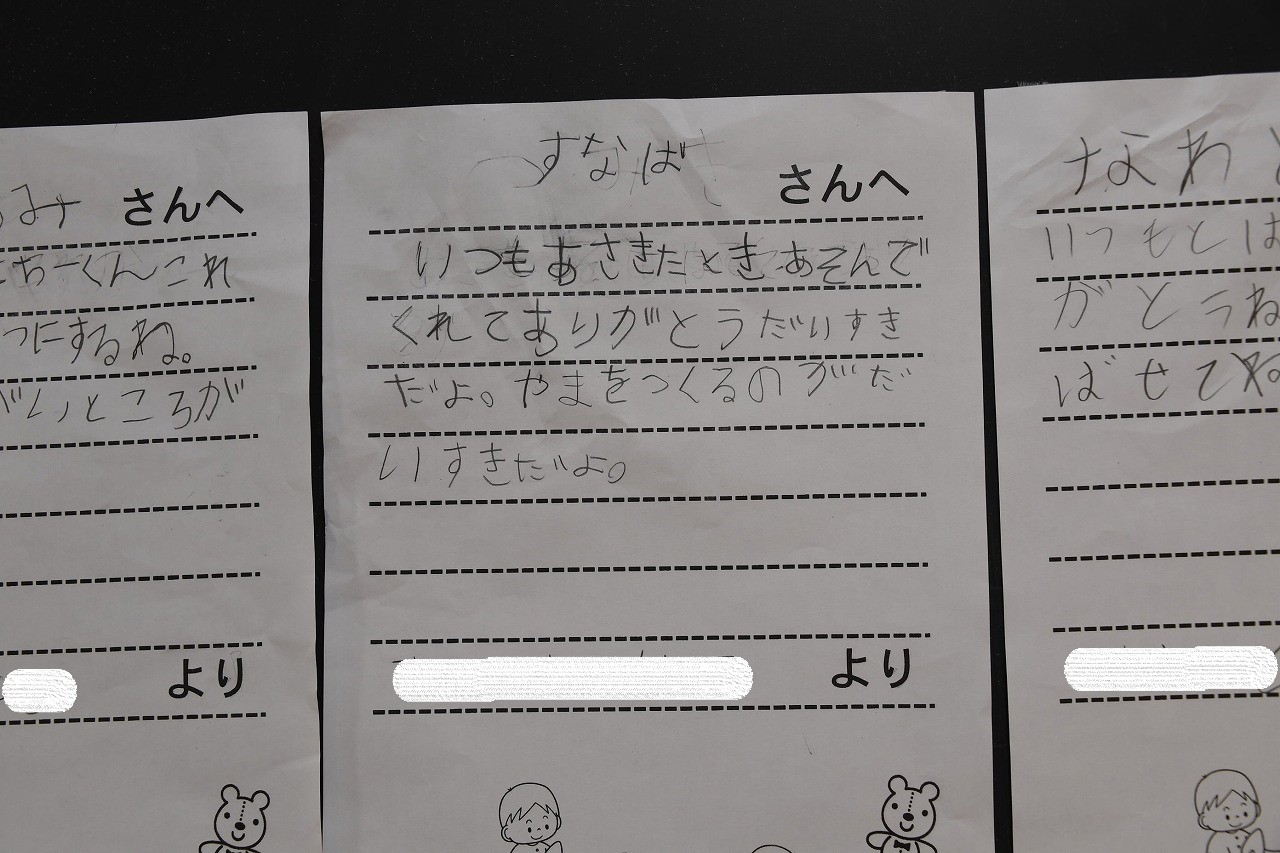 み さんへ
ちーくんこれ
つにするね。
いところが
より
すなば さんへ
いつもあさきたときあそんで
くれてありがとうだいすき
だよ。やまをつくるのがだ
いすきだよ。
より
なわ
いつもとは
がとうね
ばせてね。